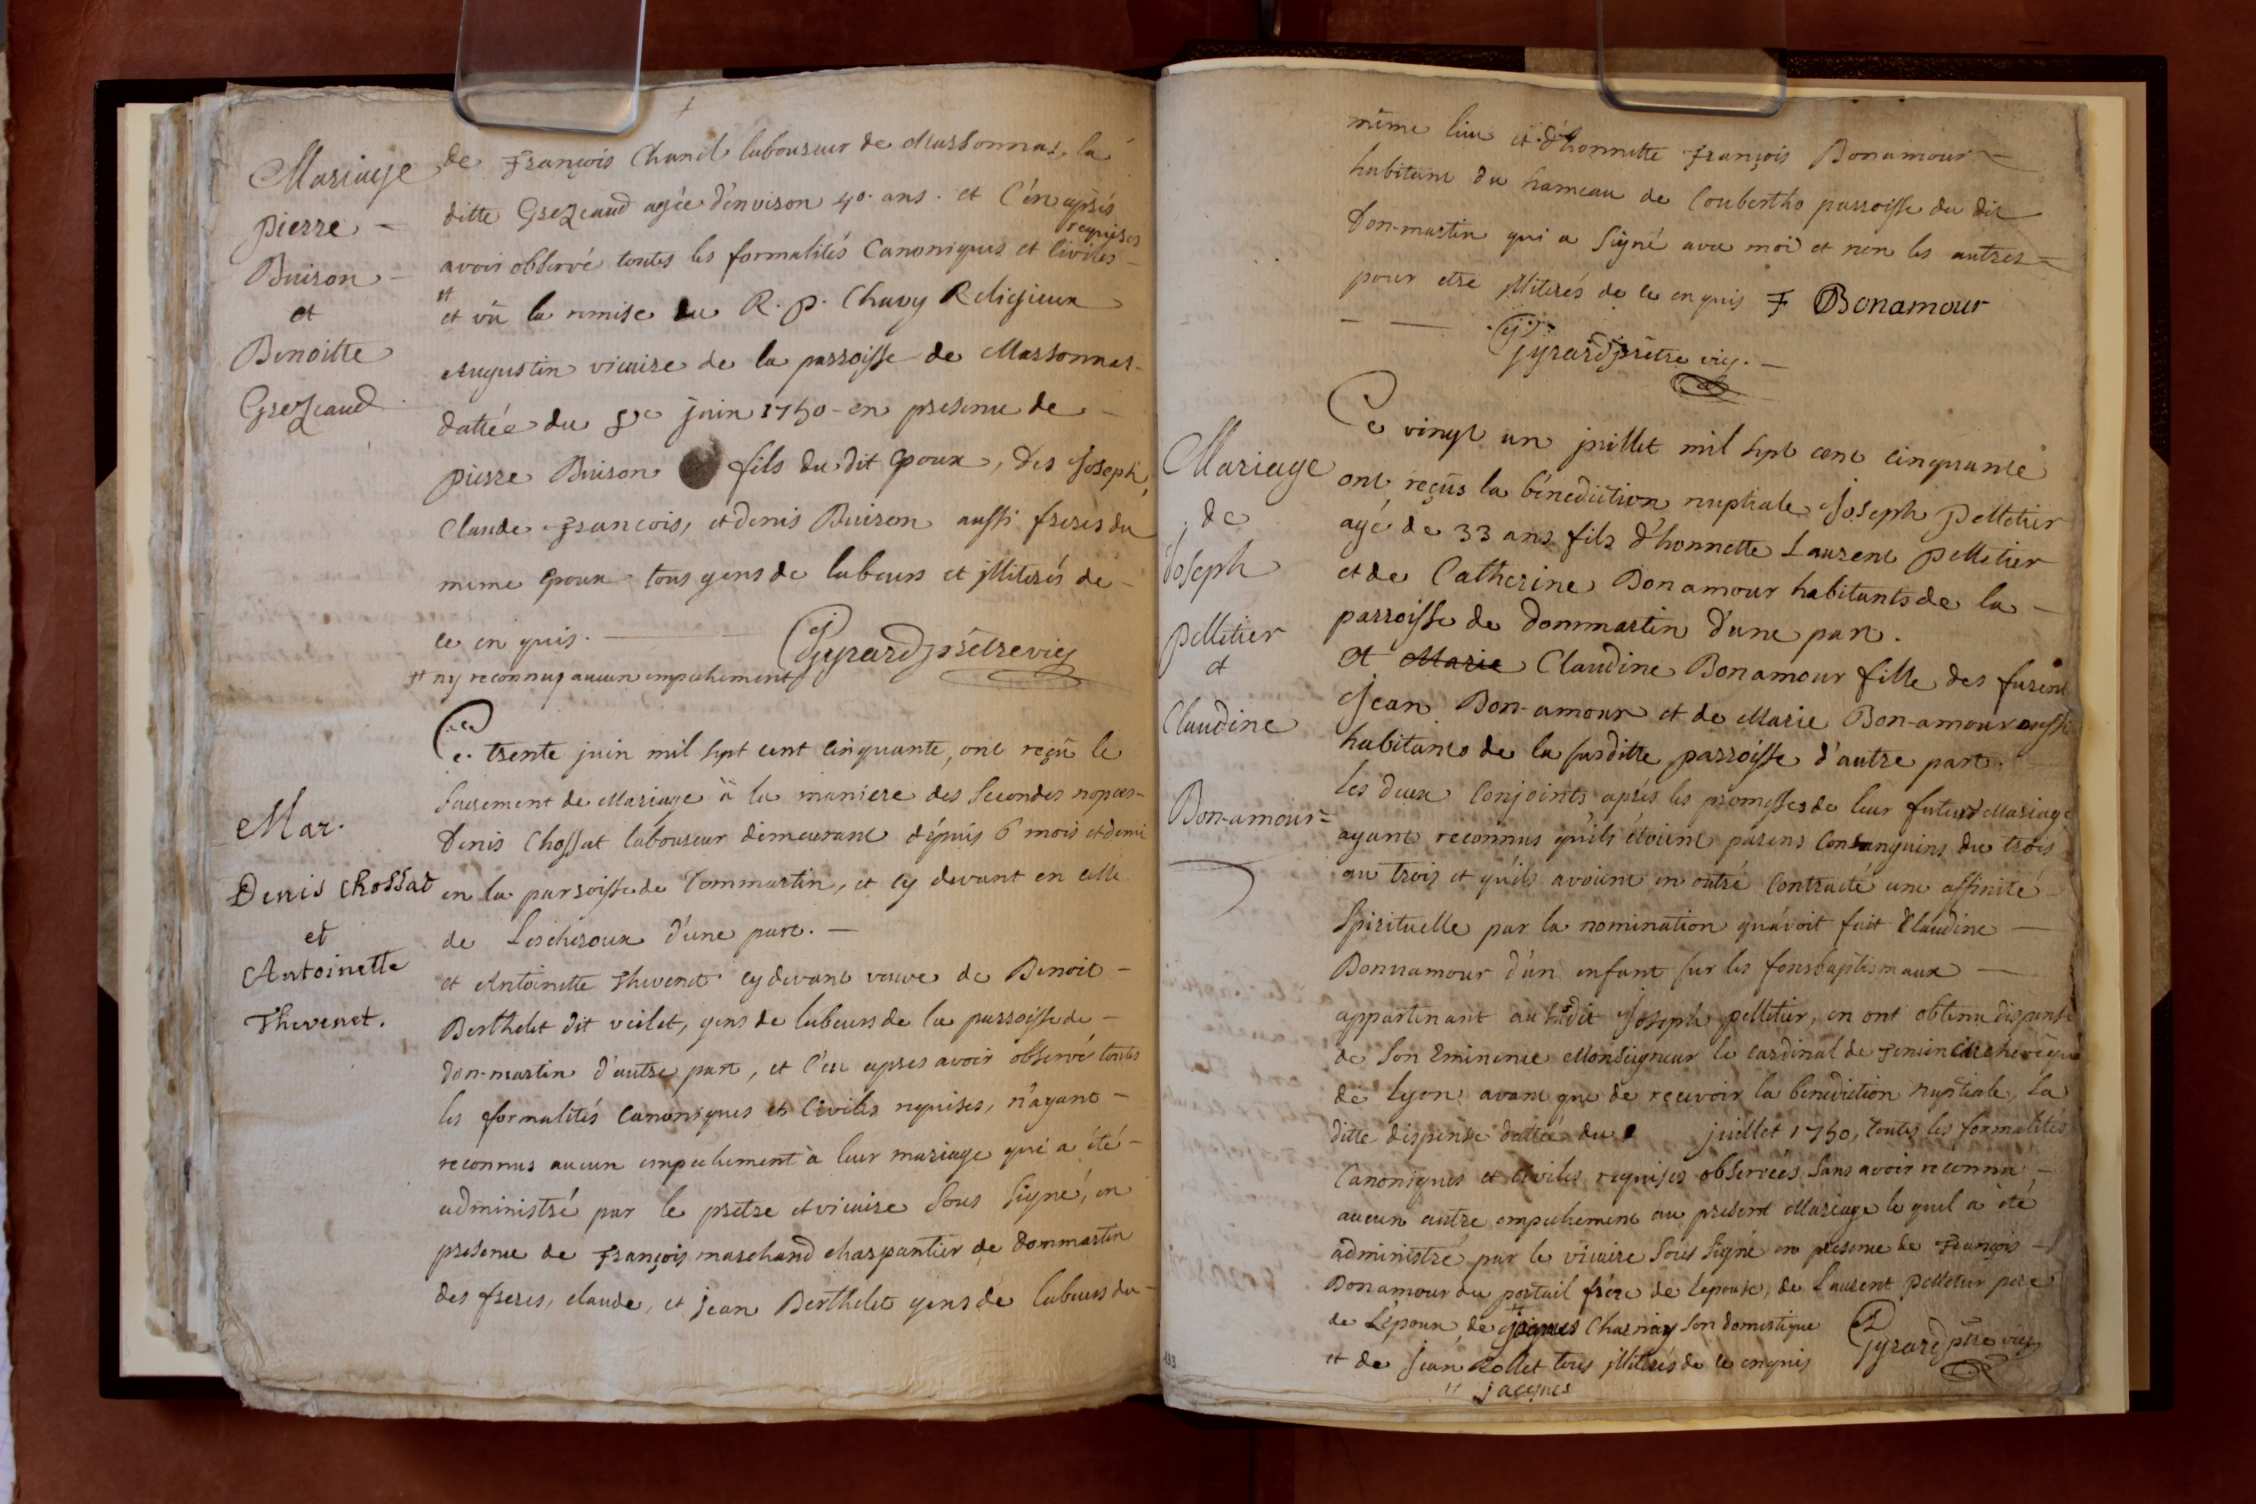 Mariage
pierre -
Buison -
et
Benoitte
Grezeaud
de François Chanel laboureur de Marsonnas, la
ditte Grezeaud agée d'environ 40. ans. et c'en après
requises
avoir observé toutes les formalités Canoniques et Civiles -
#
et vû la remise du R. p. Chavy Religieux
Augustin vicaire de la parroisse de Marsonnas -
dattée du 8e juin 1750 - en presence de -
pierre Buison fils du dit Epoux, des Joseph,
Claude François, et denis Buison aussi freres du
meme Epoux tous gens de labeurs et illiterés de -
ce enquis. Gyrard prêtre vic
# ny reconnus aucun empechement
Mar.
Denis Chossat
et
Antoinette
Thevenet.
Ce trente juin mil sept cent cinquante, ont reçu le
Sacrement de Mariage à la maniere des secondes nopces -
Denis Chossat laboureur demeurant dépuis 6 mois et demi
en la parroisse de Dommartin, et cy devant en celle
de Lescheroux d'une part. -
et Antoinette Thevenet cy devant veuve de Benoit -
Berthelet dit veilet, gens de labeurs de la parroisse de -
don-martin d'autre part, et c'en apres avoir observé toutes
les formalités canoniques et Civiles requises, n'ayant -
reconnus aucun empechement à leur mariage qui a été -
administré par le prêtre et vicaire sous signé, en
presence de François marchand charpantier de dommartin
des freres, claude, et jean Berthelet gens de labeurs du -
même lieu et d'honnette François Bonamour -
habitant du hameau de Coubertho parroisse du dit
Don-martin qui a signé avec moi et non les autres -
pour etre illiterés de ce enquis F Bonamour
Gyrard prêtre vic. -
Mariage
de
Joseph
pelletier
et
Claudine
Bon-amour =
Ce vingt un juillet mil sept cent cinquante
ont reçûs la bénediction nuptiale Joseph Pelletier
agé de 33 ans fils d'honnette Laurent pelletier
et de Catherine Bonamour habitants de la -
parroisse de dommartin d'une part.
et Marie Claudine Bonamour fille des furent
Jean Bon-amour et de Marie Bon-amour aussi
habitants de la susditte parroisse d'autre part.
les deux Conjoints après les promesses de leur futur Mariage
ayant reconnus qu'ils étoient parens consanguins du trois
au trois et qu'ils avoient en outre contracté une affinité
spirituelle par la nomination qu'avoit fait Claudine -
Bonnamour d'un enfant sur les fonsbaptismaux -
appartenant audit Joseph pelletier, en ont obtenu dispense
de son Eminence Monseigneur le cardinal de Tencin archevêque
de Lyon avant que de reçevoir la benediction nuptiale, la
ditte dispense dattée du juillet 1750, toutes les formalités
Canoniques et Civiles requises observées sans avoir reconnu -
aucun autre empechement au present Mariage le quel a été
administré par le vicaire sous signé en presence de François -
Bonamour du portail frere de l'epouse, de Laurent pelletier pere
de L'époux, de jaques Charnay son domestique
et de jean Rollet tous illiterés de ce enquis Gyrard ptre vic
# jacques